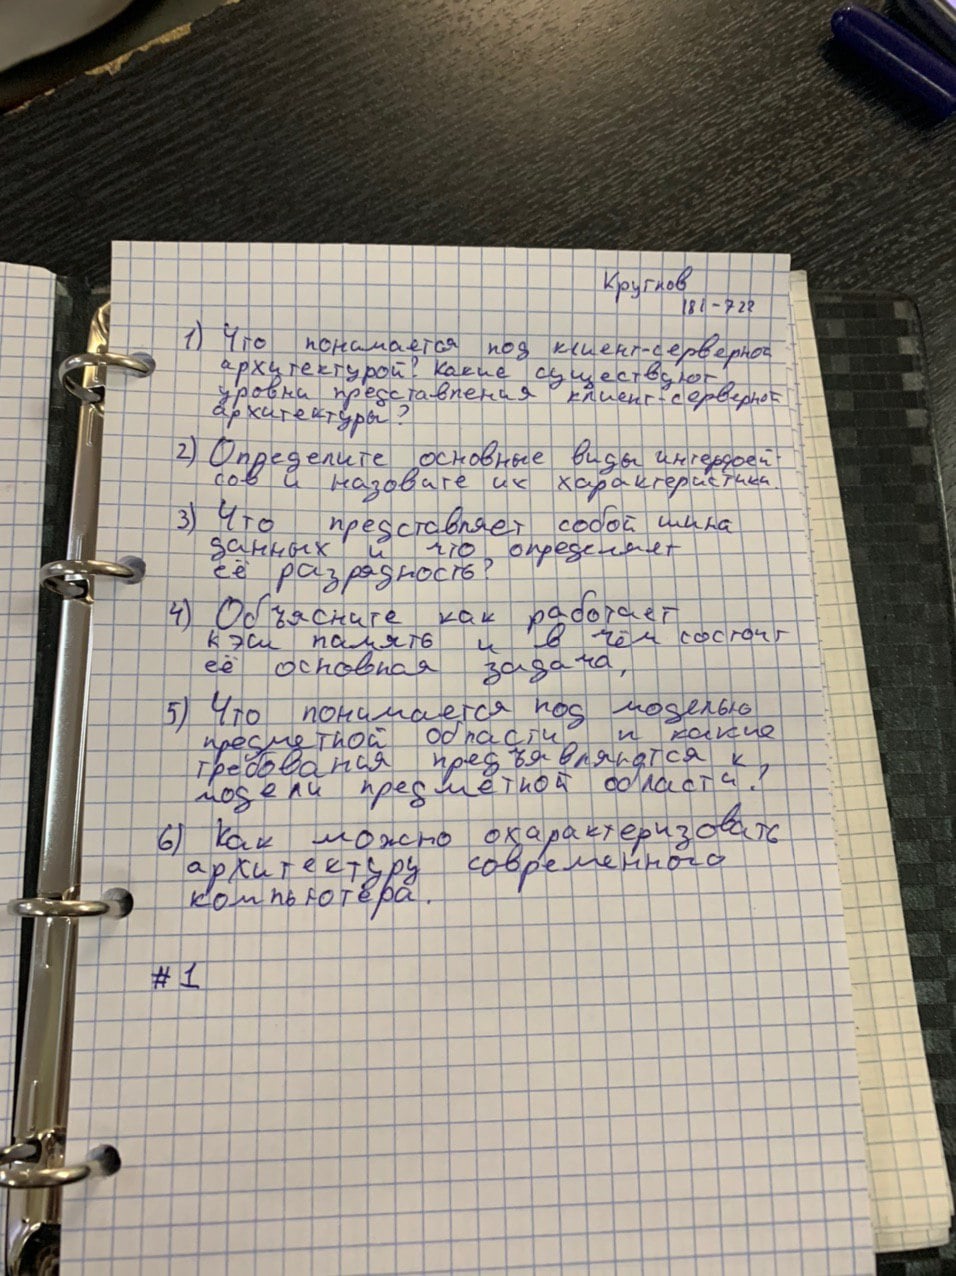 Кругнов
181-722
1) Что понимается под клиент-серверной
архитектурой? Какие существуют
уровни представления клиент-серверной
архитектуры?
2) Определите основные виды интерфей
сов и назовите их характеристики.
3) Что представляет собой шина
данных и что определяет
её разрядность?
4) Объясните как работает
кэш память и в чём состоит
её основная задача,
5) Что понимается под моделью
предметной области и какие
требования предъявляются к
модели предметной области?
6) Как можно охарактеризовать
архитектуру современного
компьютера.
#1